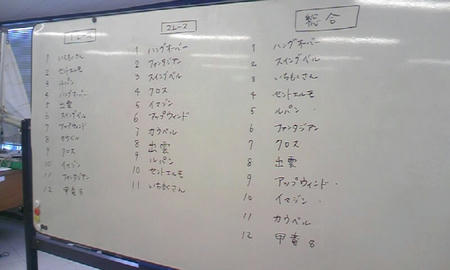 1レース
1 いちもくさん
2 セントエルモ
3 ルパン
4 ハングオーバー
5 出雲
6 スイングベル
7 アップウィンド
8 カウベル
9 クロス
10 イマジン
11 ファンタジアン
12 甲斐8
2レース
1 ハングオーバー
2 ファンタジアン
3 スイングベル
4 クロス
5 イマジン
6 アップウィンド
7 カウベル
8 出雲
9 ルパン
10 セントエルモ
11 いちもくさん
総合
1 ハングオーバー
2 スイングベル
3 いちもくさん
4 セントエルモ
5 ルパン
6 ファンタジアン
7 クロス
8 出雲
9 アップウィンド
10 イマジン
11 カウベル
12 甲斐8